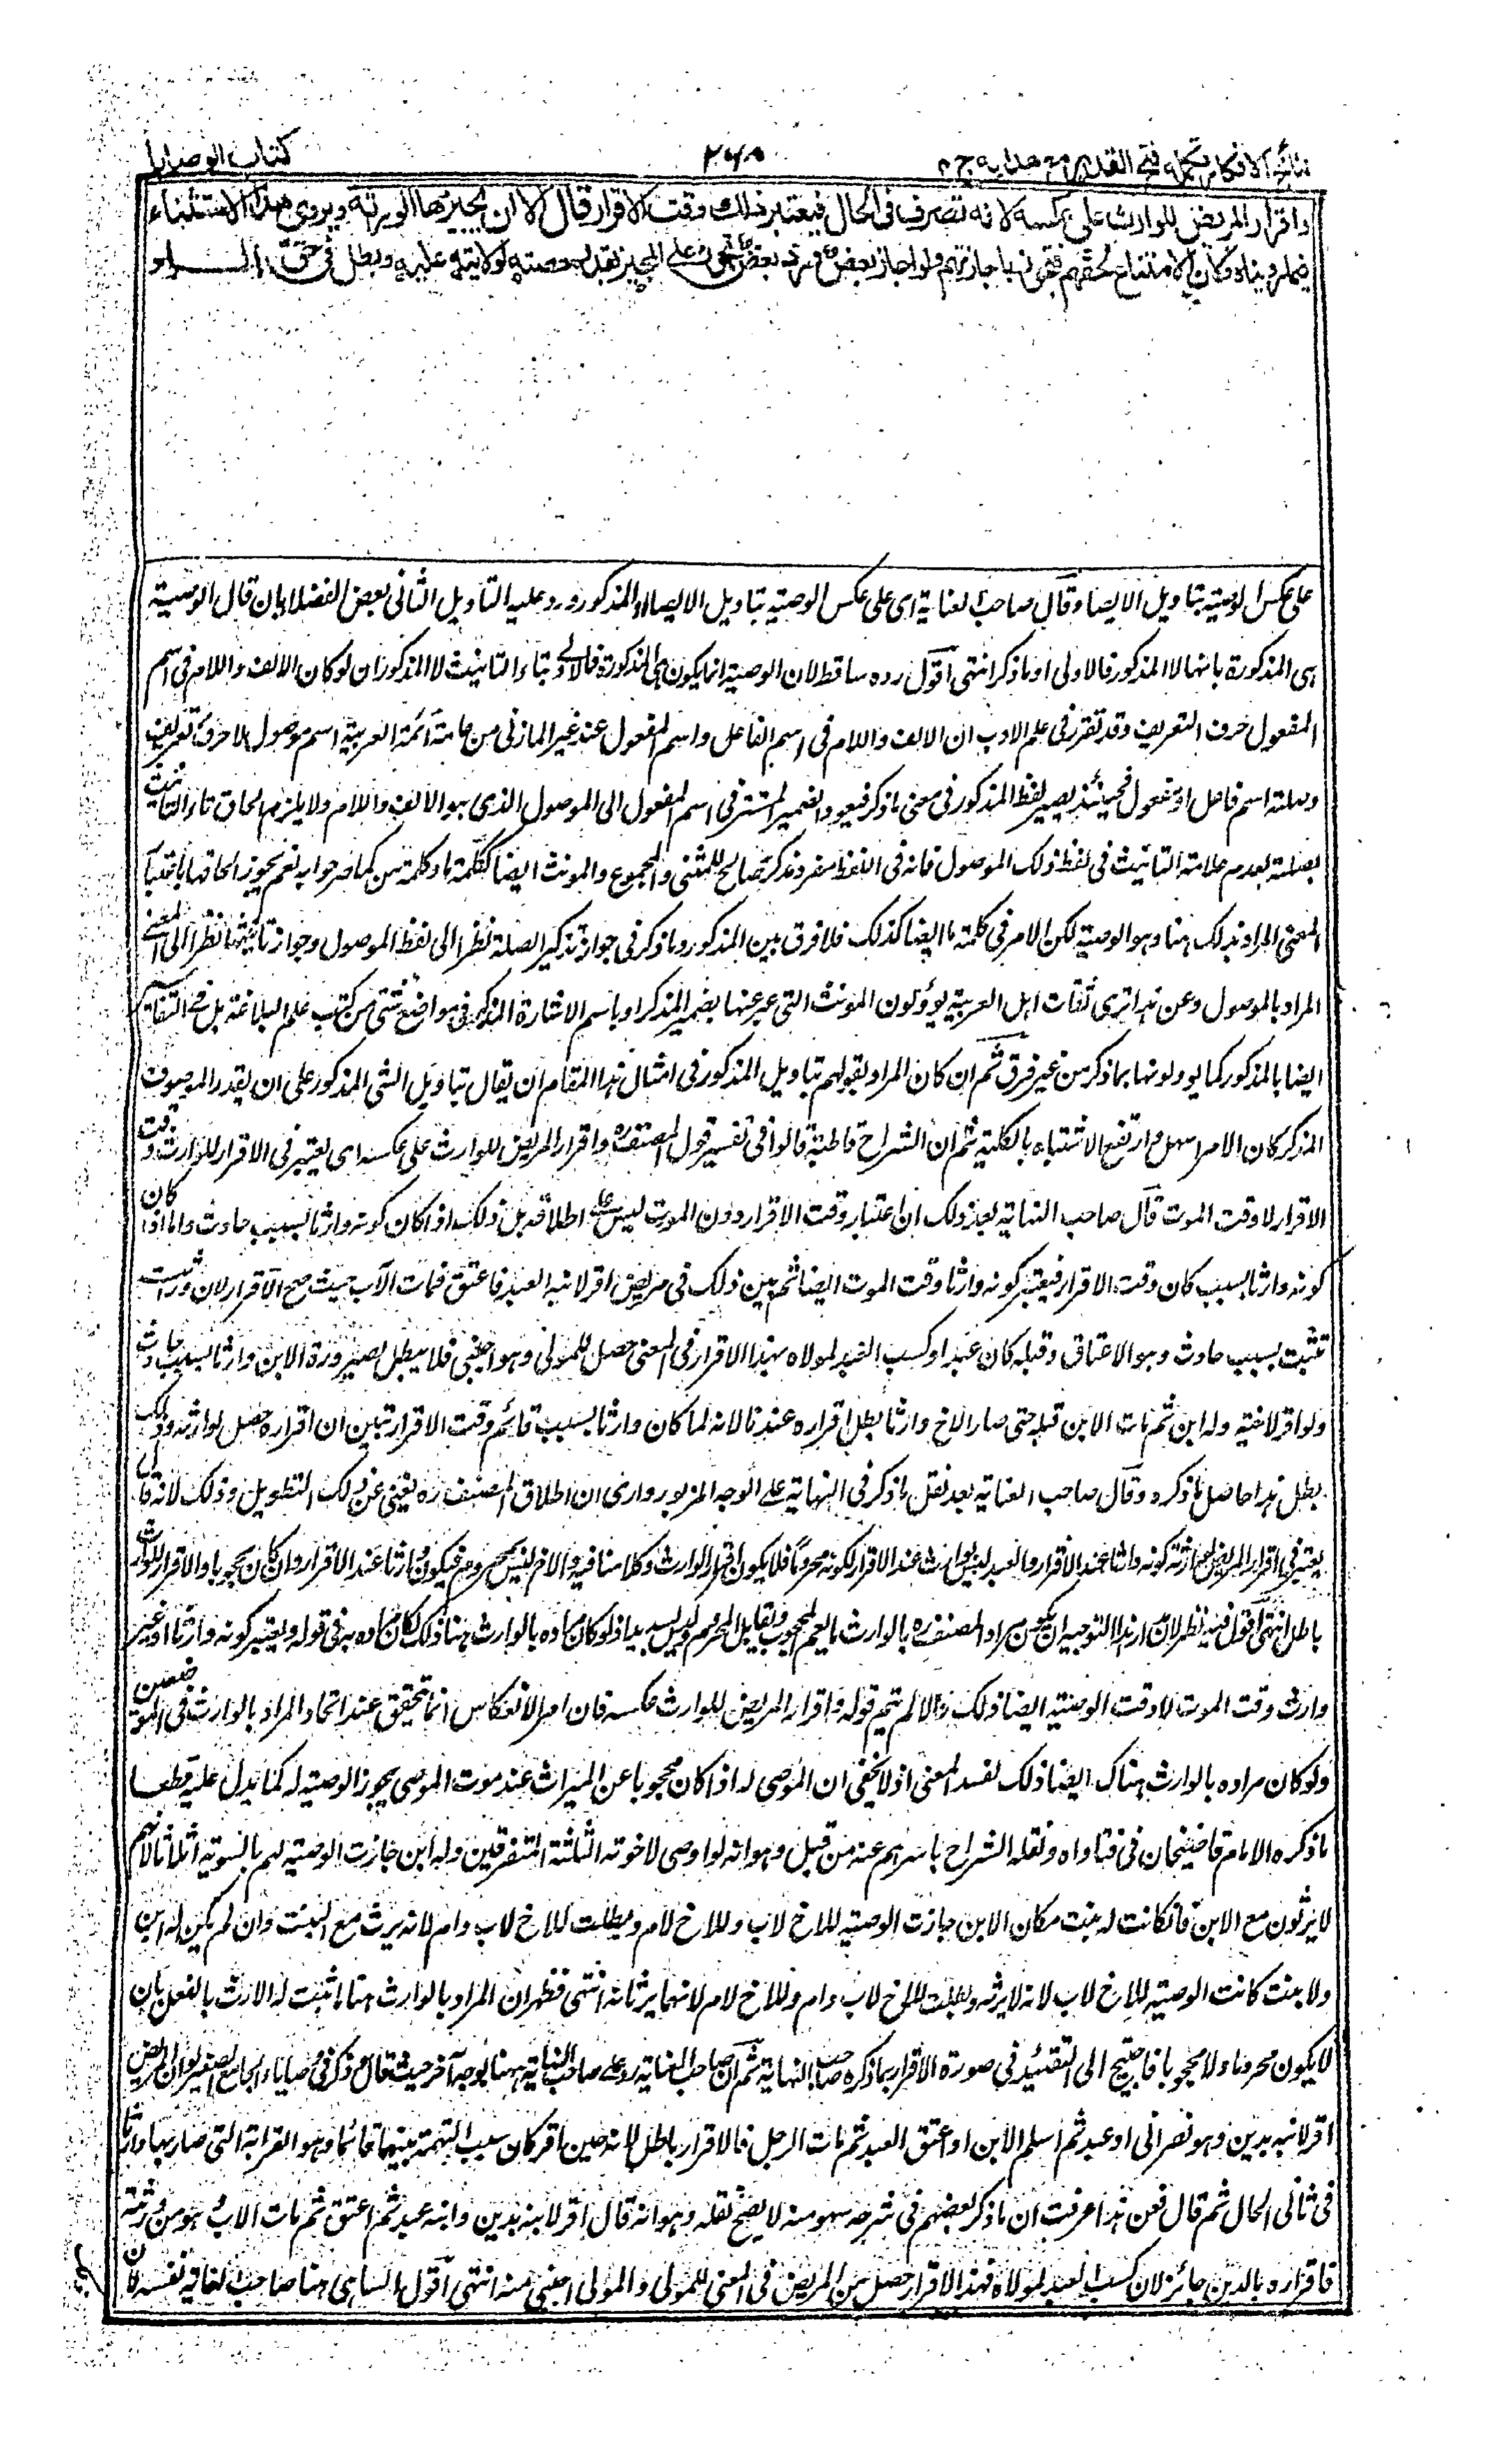 نتائج الافكار تكملة فتح القدير مع هداية ج ٤
٢٦٨
كتاب الوصايا
واقرار المريض للوارث على عكسه لانه تصرف فى الحال فيعتبر ذلك وقت الاقرار قال الا ان يجيزها الورثة ويروى هذا الاستثناء
فيما رويناه ولان الامتناع لحقهم فتجوز باجازتهم ولو اجاز بعض ورد بعض تجوز على المجيز بقدر حصته لولايته عليه وبطل فى حق الراد
على عكس الوصية بتاويل الايصاء وقال صاحب العناية اى على عكس الوصية بتاويل الايصاء او المذكور ورد عليه التاويل الثانى بعض الفضلاء بان قال الوصية
هى المذكورة بانها لا المذكور فالاولى او ما ذكر انتهى اقول رده ساقط لان الوصية انما يكون هى المذكورة بتاء التانيث لا المذكور ان لو كان الالف واللام فى اسم
المفعول حرف التعريف وقد تقرر فى علم الادب ان الالف واللام فى اسم الفاعل واسم المفعول عند غير المازنى من عامة ائمة العربية اسم موصول لا حرف تعريف
وصلته اسم فاعل او مفعول فحينئذ يصير لفظ المذكور فى معنى ما ذكر فيعود الضمير المستتر فى اسم المفعول الى الموصول الذى هو الالف واللام ولا يلزم الحاق تاء التانيث
بصلته لعدم علامة التانيث فى لفظ ذلك الموصول فانه فى اللفظ مفرد مذكر صالح للمثنى والمجموع والمونث ايضا ككلمة ما وكلمة من كما صرحوا به نعم يجوز الحاقها باعتبار
المعنى المراد بذلك هنا وهو الوصية لكن الامر فى كلمة ما ايضا كذلك فلا فرق بين المذكور وما ذكر فى جواز تذكير الصلة نظرا الى لفظ الموصول وجواز تانيثها نظرا الى المعنى
المراد بالموصول وعن هذا ترى ثقات اهل العربية يؤولون المونث التى عبر عنها بضمير المذكر او باسم الاشارة المذكر فى مواضع شتى من كتب علم البلاغة بل فى
ايضا بالمذكور كما يولونها بما ذكر من غير فرق ثم ان كان المراد بقولهم بتاويل المذكور فى امثال هذا المقام ان يقال بتاويل الشئ المذكور على ان يقدر الموصوف
المذكر كان الامر اسهل وارتفع الاشتباه بالكلية ثم ان الشراح قاطبة قالوا فى تفسير قول المصنف ره واقرار المريض للوارث على عكسه اى يعتبر فى الاقرار للوارث وقت
الاقرار لا وقت الموت قال صاحب النهاية بعد ذلك ان اعتبار وقت الاقرار دون الموت ليس على اطلاقه بل ذلك اذا كان كونه وارثا بسبب حادث واما اذا كان
كونه وارثا بسبب كان وقت الاقرار فيعتبر كونه وارثا وقت الموت ايضا ثم بين ذلك فى مريض اقر لابنه العبد فاعتق فمات الاب حيث صح الاقرار لان وراثته
تثبت بسبب حادث وهو الاعتاق وقبله كان عبدا وكسب العبد لمولاه بهذا الاقرار فى المعنى حصل للمولى وهو اجنبى فلا يبطل بصيرورة الابن وارثا بسبب حادث
ولو اقر لاخيه وله ابن ثم مات الابن قبله حتى صار الاخ وارثا بطل اقراره عندنا لانه لما كان وارثا بسبب قائم وقت الاقرار تبين ان اقراره حصل لوارثه وذلك
يبطل هذا حاصل ما ذكره وقال صاحب العناية بعد نقل ما ذكر فى النهاية على الوجه المزبور وارى ان اطلاق المصنف ره يغنى عن ذلك التطويل وذلك لانه قال
يعتبر فى اقرار المريض لوارثه كونه وارثا عند الاقرار والعبد ليس بوارث عند الاقرار لكونه محروما فلا يكون اقرارا لوارث وكلامنا فيه والاخ ليس بمحروم فيكون وارثا عند الاقرار وان كان محجوبا والاقرار للوارث
باطل انتهى اقول فيه نظر لان مدار هذا التوجيه ان يكون مراد المصنف ره بالوارث ما يعم المحجوب ويقابل المحروم وليس بسديد اذ لو كان مراده بالوارث هنا ذلك لكان مراده به فى قوله ويعتبر كونه وارثا او غير
وارث وقت الموت لا وقت الوصية ايضا ذلك والا لم يتم قوله واقرار المريض للوارث عكسه فان امر الانعكاس انما يتحقق عند اتحاد المراد بالوارث فى الموضعين
ولو كان مراده بالوارث هناك ايضا ذلك لفسد المعنى اذ لا يخفى ان الموصى له اذا كان محجوبا عن الميراث عند موت الموصى يجوز الوصية له كما يدل عليه قطعا
ما ذكره الامام قاضيخان فى فتاواه ونقله الشراح باسرهم عنه من قبل وهو انه لو اوصى لاخوته الثلثة المتفرقين وله ابن جازت الوصية لهم بالسوية اثلاثا لانهم
لا يرثون مع الابن فان كانت له بنت مكان الابن جازت الوصية للاخ لاب وللاخ لام وبطلت للاخ لاب وام لانه يرث مع البنت وان لم يكن له ابن
ولا بنت كانت الوصية للاخ لاب لانه لا يرثه وبطلت للاخ لاب وام وللاخ لام لانهما يرثانه انتهى فظهر ان المراد بالوارث هنا ما ثبت له الارث بالفعل بان
لا يكون محروما ولا محجوبا فاحتيج الى التقييد فى صورة الاقرار بما ذكره صاحب النهاية ثم ان صاحب الغاية رد على صاحب النهاية ههنا بوجه آخر حيث قال وذكر فى وصايا الجامع الصغير لو ان المريض
اقر لابنه بدين وهو نصرانى او عبد ثم اسلم الابن او اعتق العبد ثم مات الرجل فالاقرار باطل لانه حين اقر كان سبب التهمة بينهما قائما وهو القرابة التى صار بها وارثا
فى ثانى الحال ثم قال فعن هذا عرفت ان ما ذكر بعضهم فى شرحه سهو منه لا يصح نقله وهو انه قال اقر لابنه بدين وابنه عبد ثم اعتق ثم مات الاب وهو من ورثته
فاقراره بالدين جائز لان كسب العبد لمولاه فهذا الاقرار حصل من المريض فى المعنى للمولى والمولى اجنبى منه انتهى اقول الساهى هنا صاحب الغاية نفسه فان